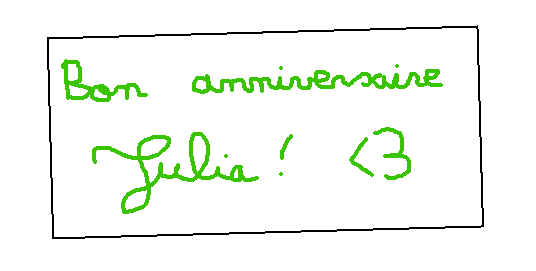 Bon anniversaire
Julia ! <3